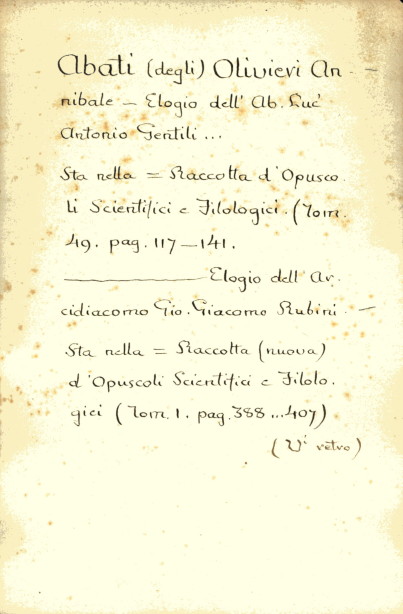 Abati (degli) Olivieri An-
nibale – Elogio dell' Ab. Luc'
Antonio Gentili ...
Sta nella = Raccolta d'Opusco.
li Scientifici e Filologici. (Tom.
49. pag. 117–141.
——— Elogio dell' Ar.
cidiacomo Gio. Giacomo Rubini. –
Sta nella = Raccolta (nuova)
d'Opuscoli Scientifici e Filolo.
gici (Tom. 1. pag. 388 ... 407)
(Vi retro)